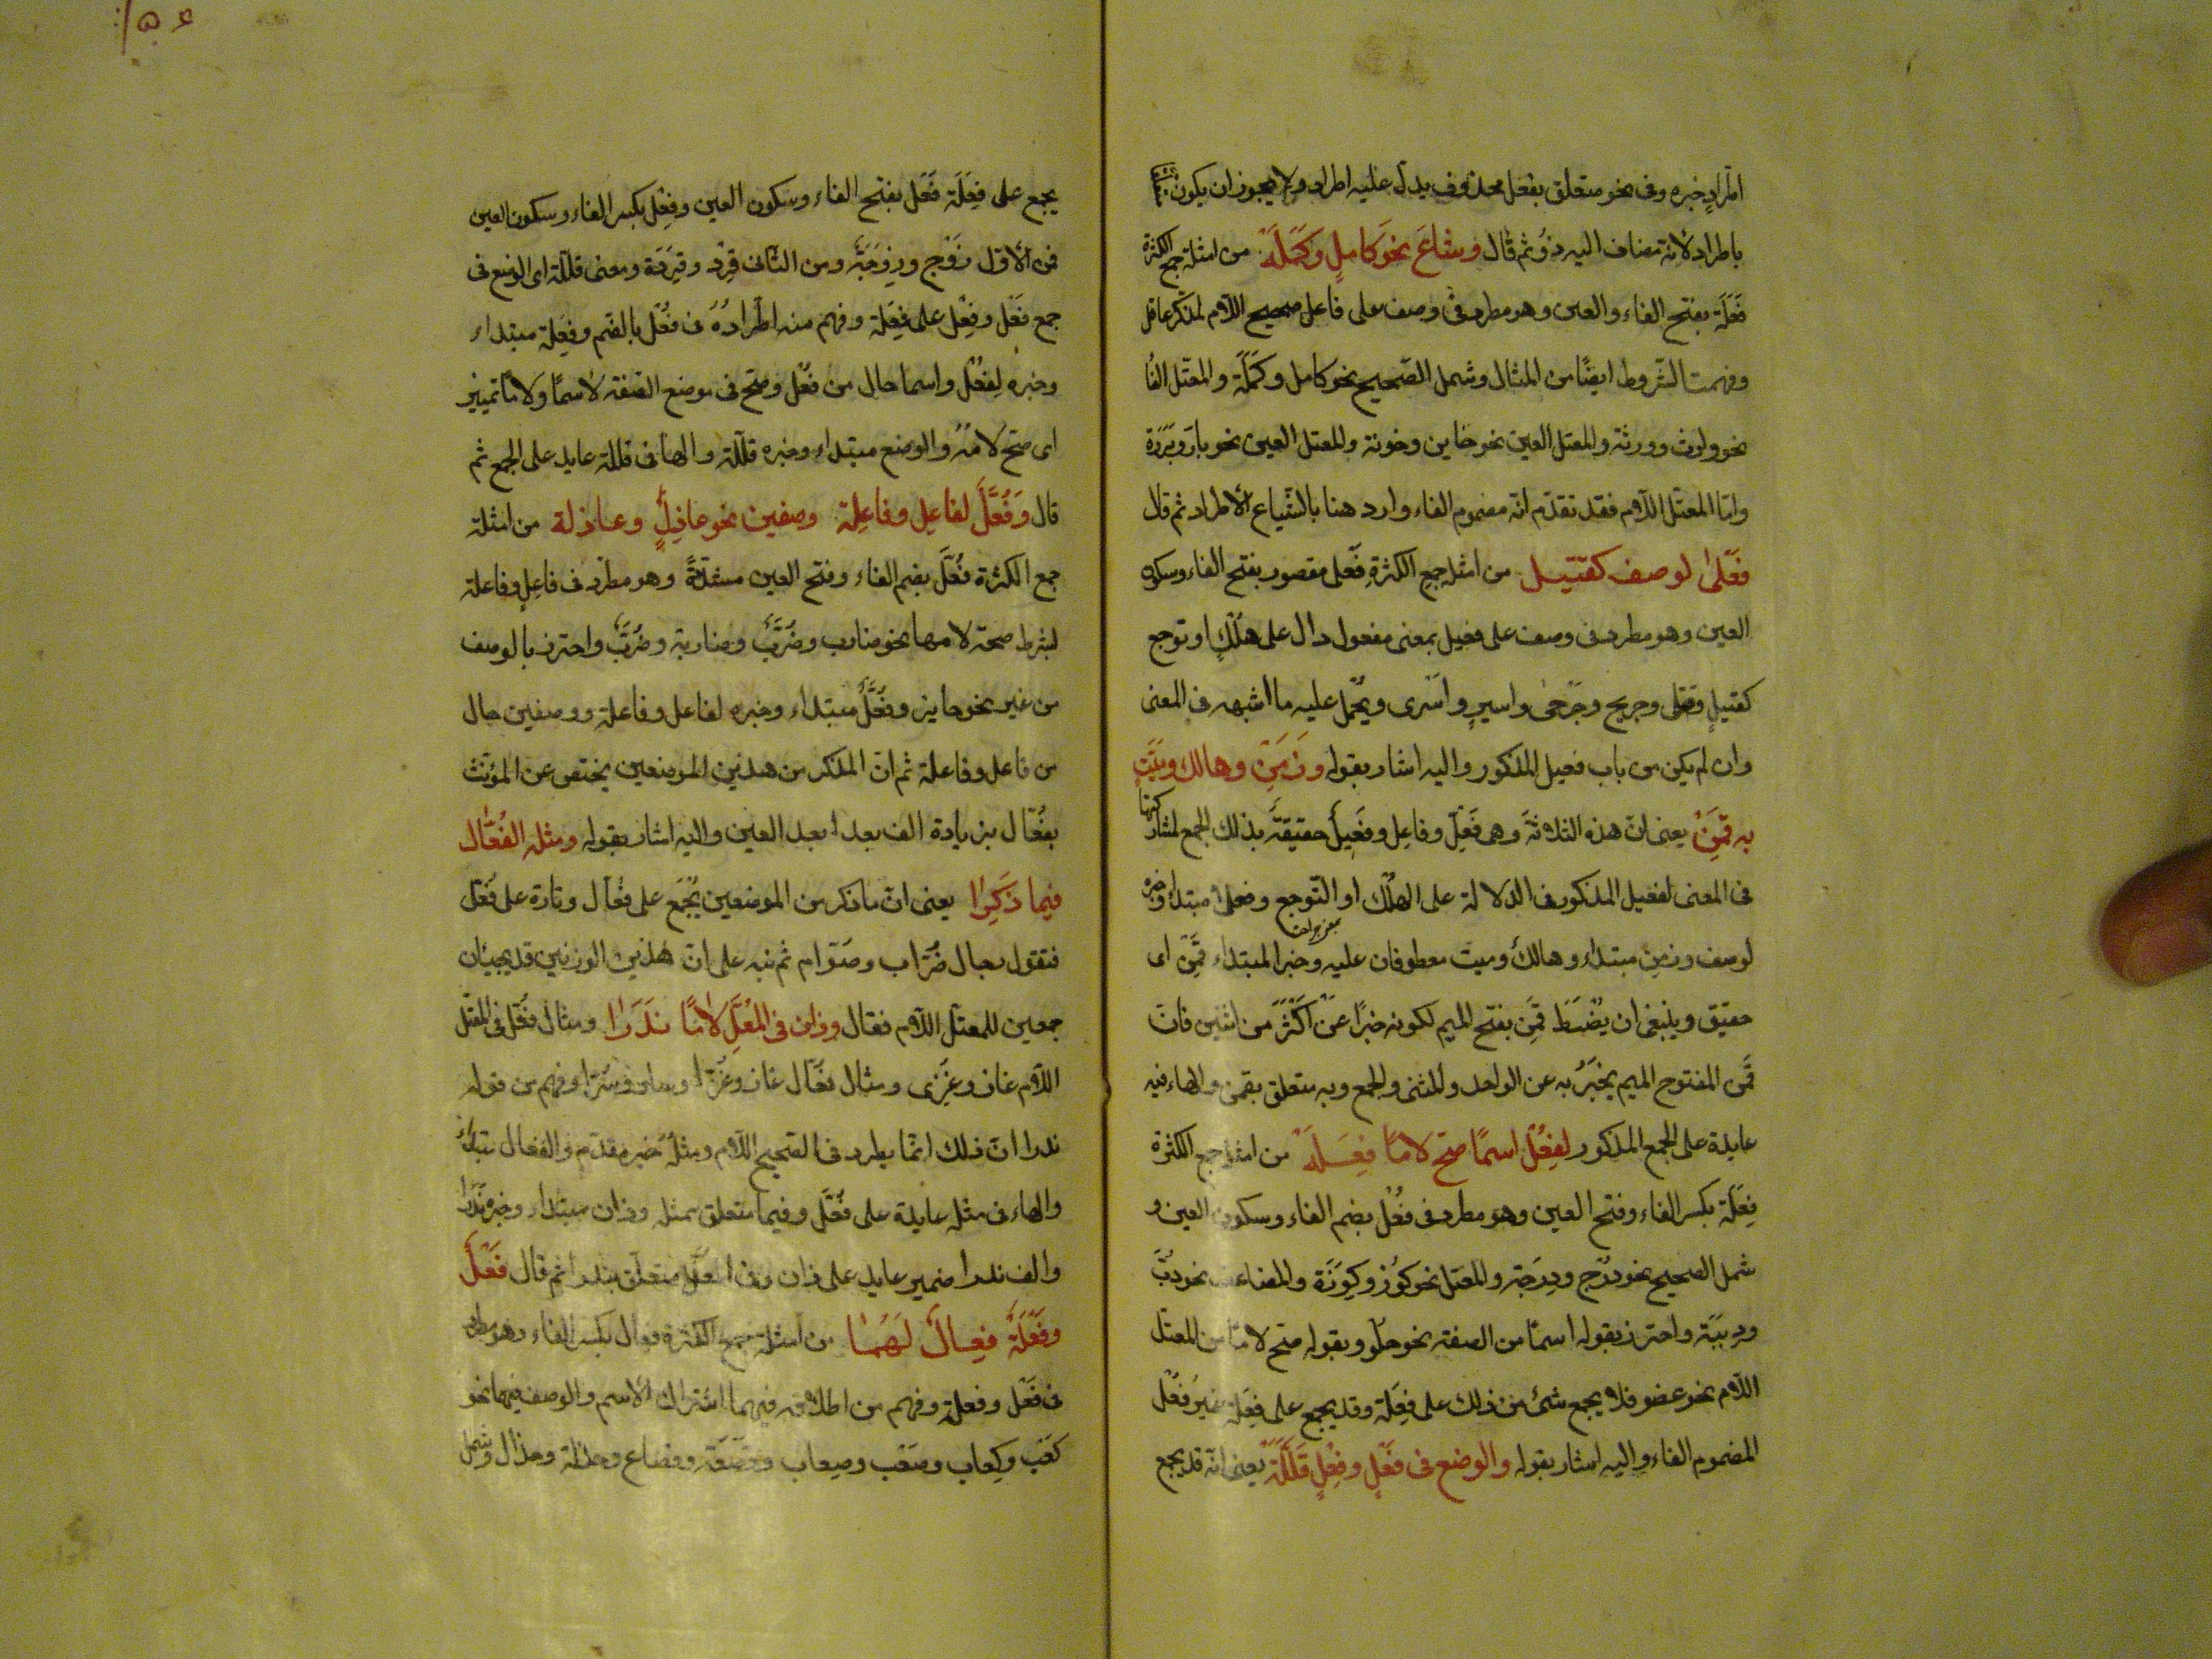 اطراد خبره وفى نحو متعلق بفعل محذوف يدل عليه اطراد ولا يجوز ان يكون
باطراد لانه مضاف اليه ذو ثم قال وشاعَ نحوَ كاملٍ وكَمَلَهْ من امثلة جمع الكثرة
فَعَلَة بفتح الفاء والعين وهو مطرد فى وصف على فاعل صحيح اللّام لمذكر عاقل
وفهمت الشّروط ايضًا من المثال وشمل الصّحيح نحو كامل وكَمَلَة والمعتل الفا
نحو وارث وورثة والمعتل العين نحو خاين وخونة والمعتل العين نحو بارّ وبَرَرَة
وامّا المعتّل اللّام فقد تقدّم انّه مضموم الفاء وارد هنا بالشّياع الاطراد ثم قال
فَعْلىٰ لوصف كقتيل من امثلة جمع الكثرة فَعْلى مقصور بفتح الفاء وسكون
العين وهو مطرد فى وصف على فعيل بمعنى مفعول دال على هُلْكٍ او توجع
كقتيلٍ وقتلى وجريح وجَرْحى واسيرٍ واَسْرى ويُحْمل عليه ما اشبهه فى المعنى
وان لم يكن من باب فعيل المذكور واليه اشار بقوله وزَمِنٌ وهالك وميّت
به قَمَنْ يعنى انّ هذه الثلاثةَ وهى فَعِل وفاعِل وفَيْعِل حقيقة بذلك الجمع لمشاركتها
فى المعنى لفعيل المذكور فى الدلالة على الهُلْك او التّوجع وفعلى مبتداء وخبره
لوصف وزمِن مبتداء وهالك وميت معطوفان عليه وخبر المبتداء قَمَن اى
حقيق وينبغى ان يُضْبَطَ قَمَن بفتح الميم لكونه خبرًا عَنْ اَكْثَرَ من اثنين فانّ
قَمَن المفتوح الميم يخبَرُ به عن الواحد والمثنى والجمع وبه متعلق بقمن والهاء فيه
عايدة على الجمع المذكور لفُعْل اسمًا صحّ لامًا فِعَلَهْ من امثلة جمع الكثرة
فِعَلَة بكسر الفاء وفتح العين وهو مطرد فى فُعْل بضم الفاء وسكون العين و
شمل الصحيح نحو دُرْج ودِرَجة والمعتل نحو كُوْز وكِوَزَة والمضاعف نحو دُبّ
ودِبَبَة واحترز بقوله اسمًا من الصفة نحو حلو وبقوله صحّ لامًا من المعتل
اللّام نحو عضو فلا يجمع شئ من ذلك على فِعَلَة وقد يجمع على فِعَلَة غيرُ فُعْل
المضموم الفاء واليه اشار بقوله والوضع فى فَعْلٍ وفِعْلٍ قَلَّلَهْ يعنى انّه قد يجمع
يجمع على فِعَلَة فَعْل بفتح الفاء وسكون العين وفِعْل بكسر الفاء وسكون العين
فمن الاوّل زَوْج وزِوَجَة ومن الثّانى قِرْد وقِرَدَة ومعنى قلّله اى الوضع فى
جمع فَعْل وفِعْل على فِعَلة وفهم منه اطّرادُهُ فى فُعْل بالضّم وفِعَلة مبتداء
وخبره لِفُعْل واسما حال من فُعْل وصحّ فى موضع الصّفة لاسمًا ولامًا تمييز
اى صحّ لامُهُ والوضع مبتداء وخبره قلّله والهاء فى قلله عايد على الجمع ثم
قال وَفُعَّلٌ لفاعِلٍ وفاعِلة وصفين نحو عاذِلٍ وعاذلة من امثلة
جمع الكثرة فُعَّل بضم الفاء وفتح العين مشدّدةً وهو مطّرد فى فاعِلٍ وفاعلة
بشرط صحة لامهما نحو ضارب وضُرَّبٌ وضاربة وضُرَّبٌ واحترز بالوصف
من غير نحو حايز وفُعَّلٌ مبتداء وخبره لفاعل وفاعلة ووصفين حال
من فاعل وفاعلة ثم انّ المذكر من هذين الموضعين يختص عن المؤنث
بفُعّال بزيادة الف بعد ا بعد العين واليه اشار بقوله ومثله الفُعّال
فيما ذُكِّرا يعنى انّ ما ذكر من الموضعين يُجْمَع على فُعّال وتارة على فُعّل
فتقول رجال ضُرّاب وصُوّام ثم نبه على انّ هذين الوزنين قد يجيئان
جمعين للمعتل اللّام فقال وذان فى المُعَلِّ لامًا نَدَرا ومثال فُعَّل فى المعتل
اللّام غاز وغُزَّى ومثال فُعّال غاز وغُزّا وسار وسُرّا وفهم من قوله
ندرا انّ ذلك انّما يطرد فى الصّحيح اللّام ومثلُهُ خبر مقدّم والفعّال مبتداء
والهاء فى مثله عايدة على فُعَّل وفيما متعلق بمثله وذان مبتداء وخبره نَدَرا
والف ندرا ضمير عايد على ذان وفى المعلّ متعلق بندرا ثم قال فَعْلٌ
وفَعْلَةٌ فِعالٌ لَهُما من امثلة جمع الكثرة فعال بكسر الفاء وهو مطرد
فى فَعْل وفعلة وفهم من اطلاقه فيهما اشتراك الاسم والوصف فيهما نحو
كَعْب وكِعاب وصَعْب وصِعاب وقَصْعَة وقصاع وخذلة وخذال وشمل